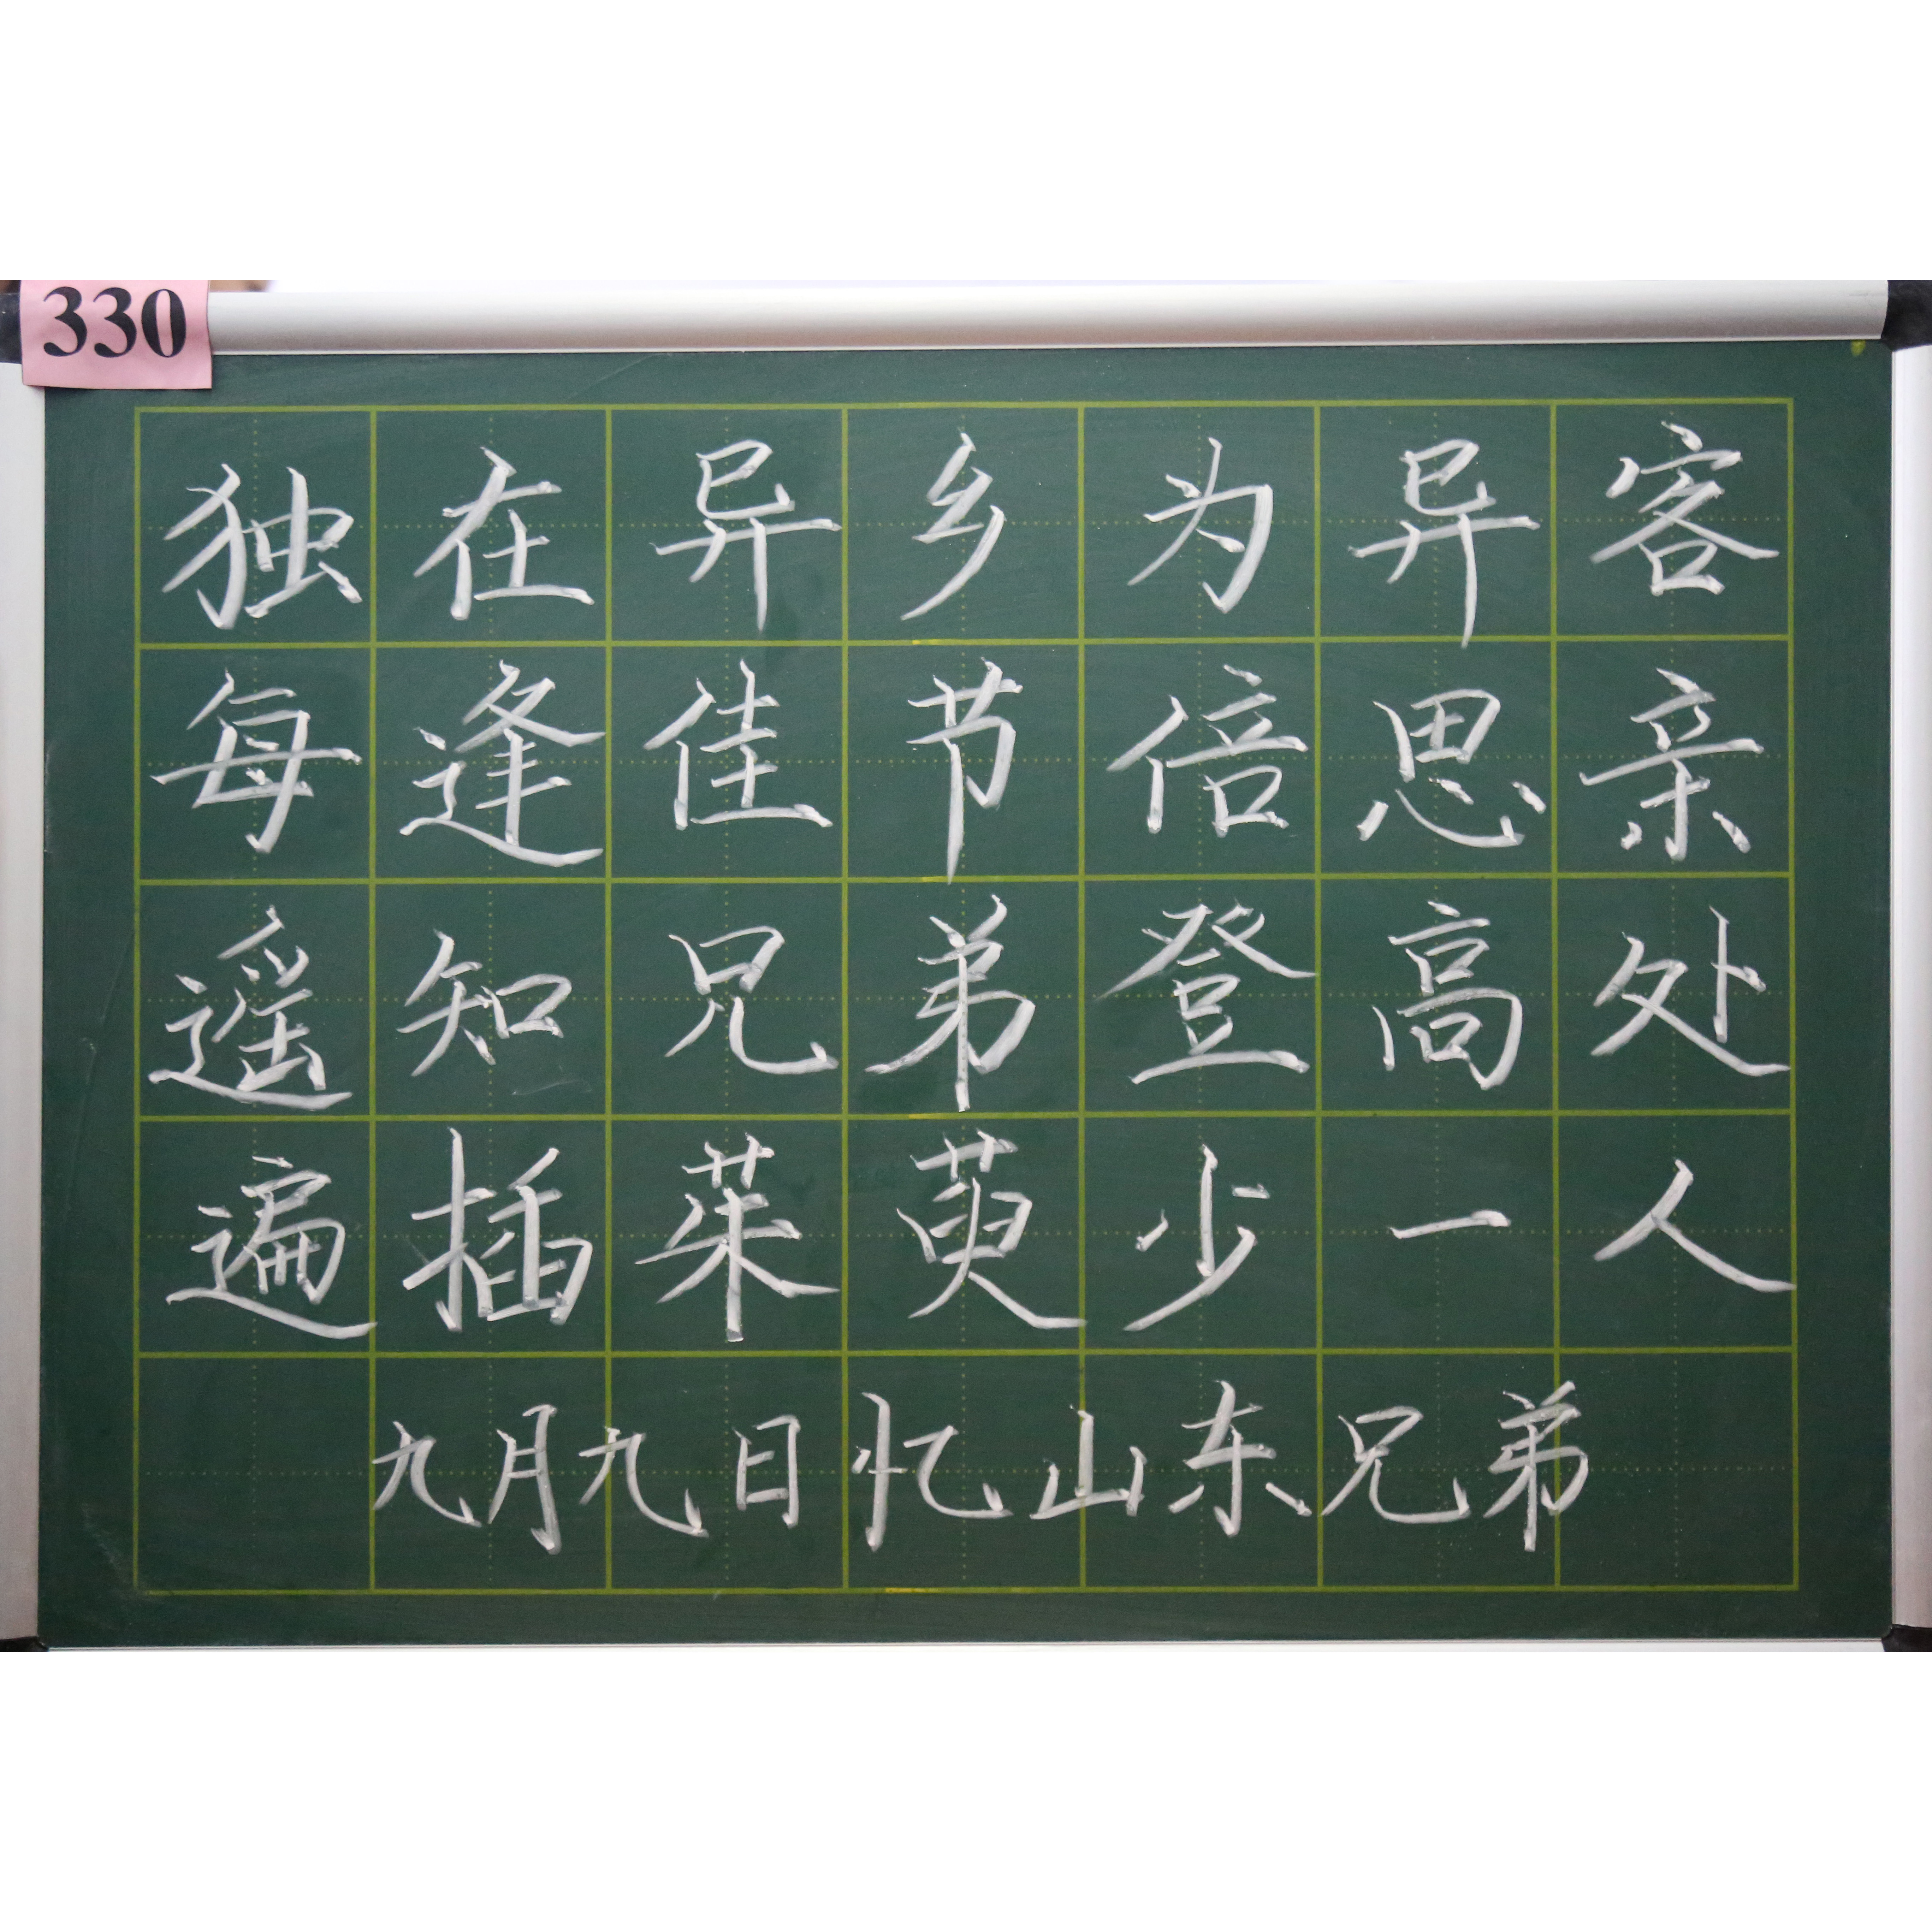 330
独在异乡为异客
每逢佳节倍思亲
遥知兄弟登高处
遍插茱萸少一人
九月九日忆山东兄弟